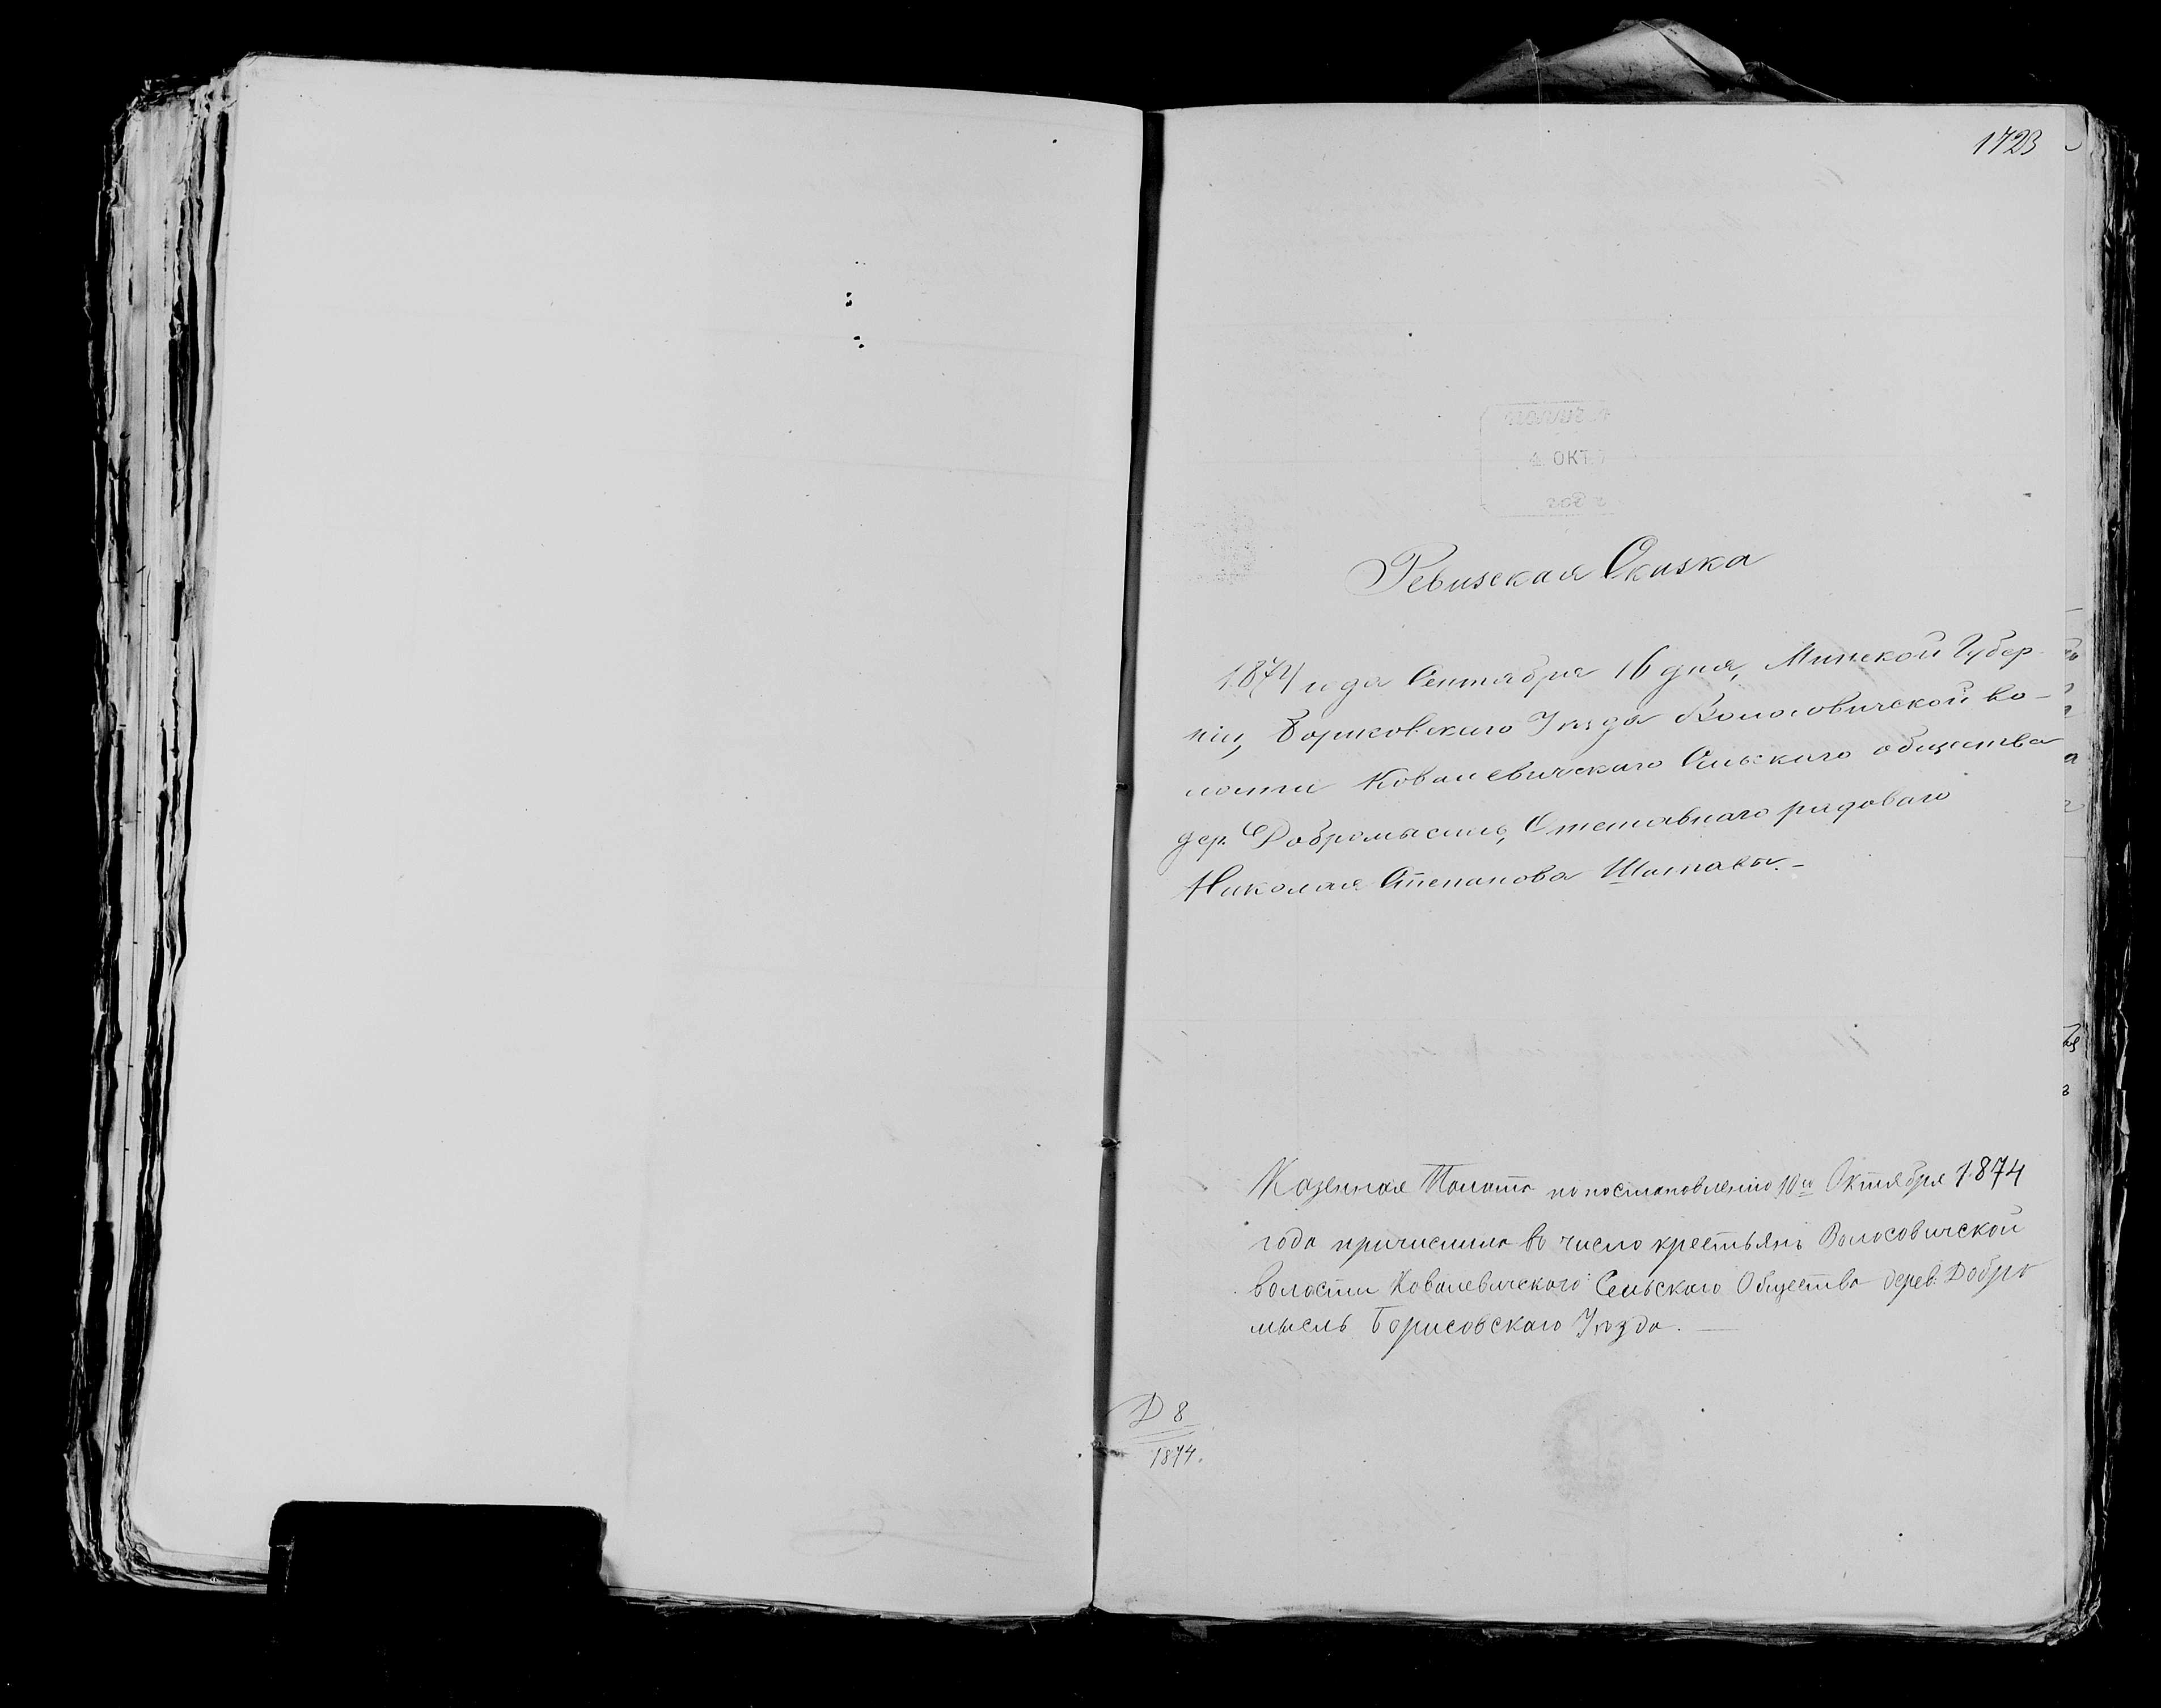 1723
4 ОКТ
Ревизская Сказка
1874 года Сентября 16 дня, Минской Губер
ніи, Борисовскаго Уѣзда Волосовичской во-
лости Ковалевичскаго Сельскаго общества
дер. Добромысль, Отставнаго рядоваго
Николая Степанова
Казенная Палата по постановленію 10го Октября 1874
года причислила въ число крестьянъ Волосовичской
волости Ковалевичскаго Сельскаго Общества дерев. Добро
мысль Борисовскаго Уѣзда. —
Д 8
1874.